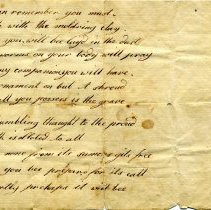 n remember you must
with the moldering clay
you, will bee laid in the dust
worms on your body will pray
my companions you will have
ornament on but A shroud
ll you possess is the grave
umbling thought to the proud
is allotted to all
none from its summons is free
you bee prepare for its call
perhaps it will bee